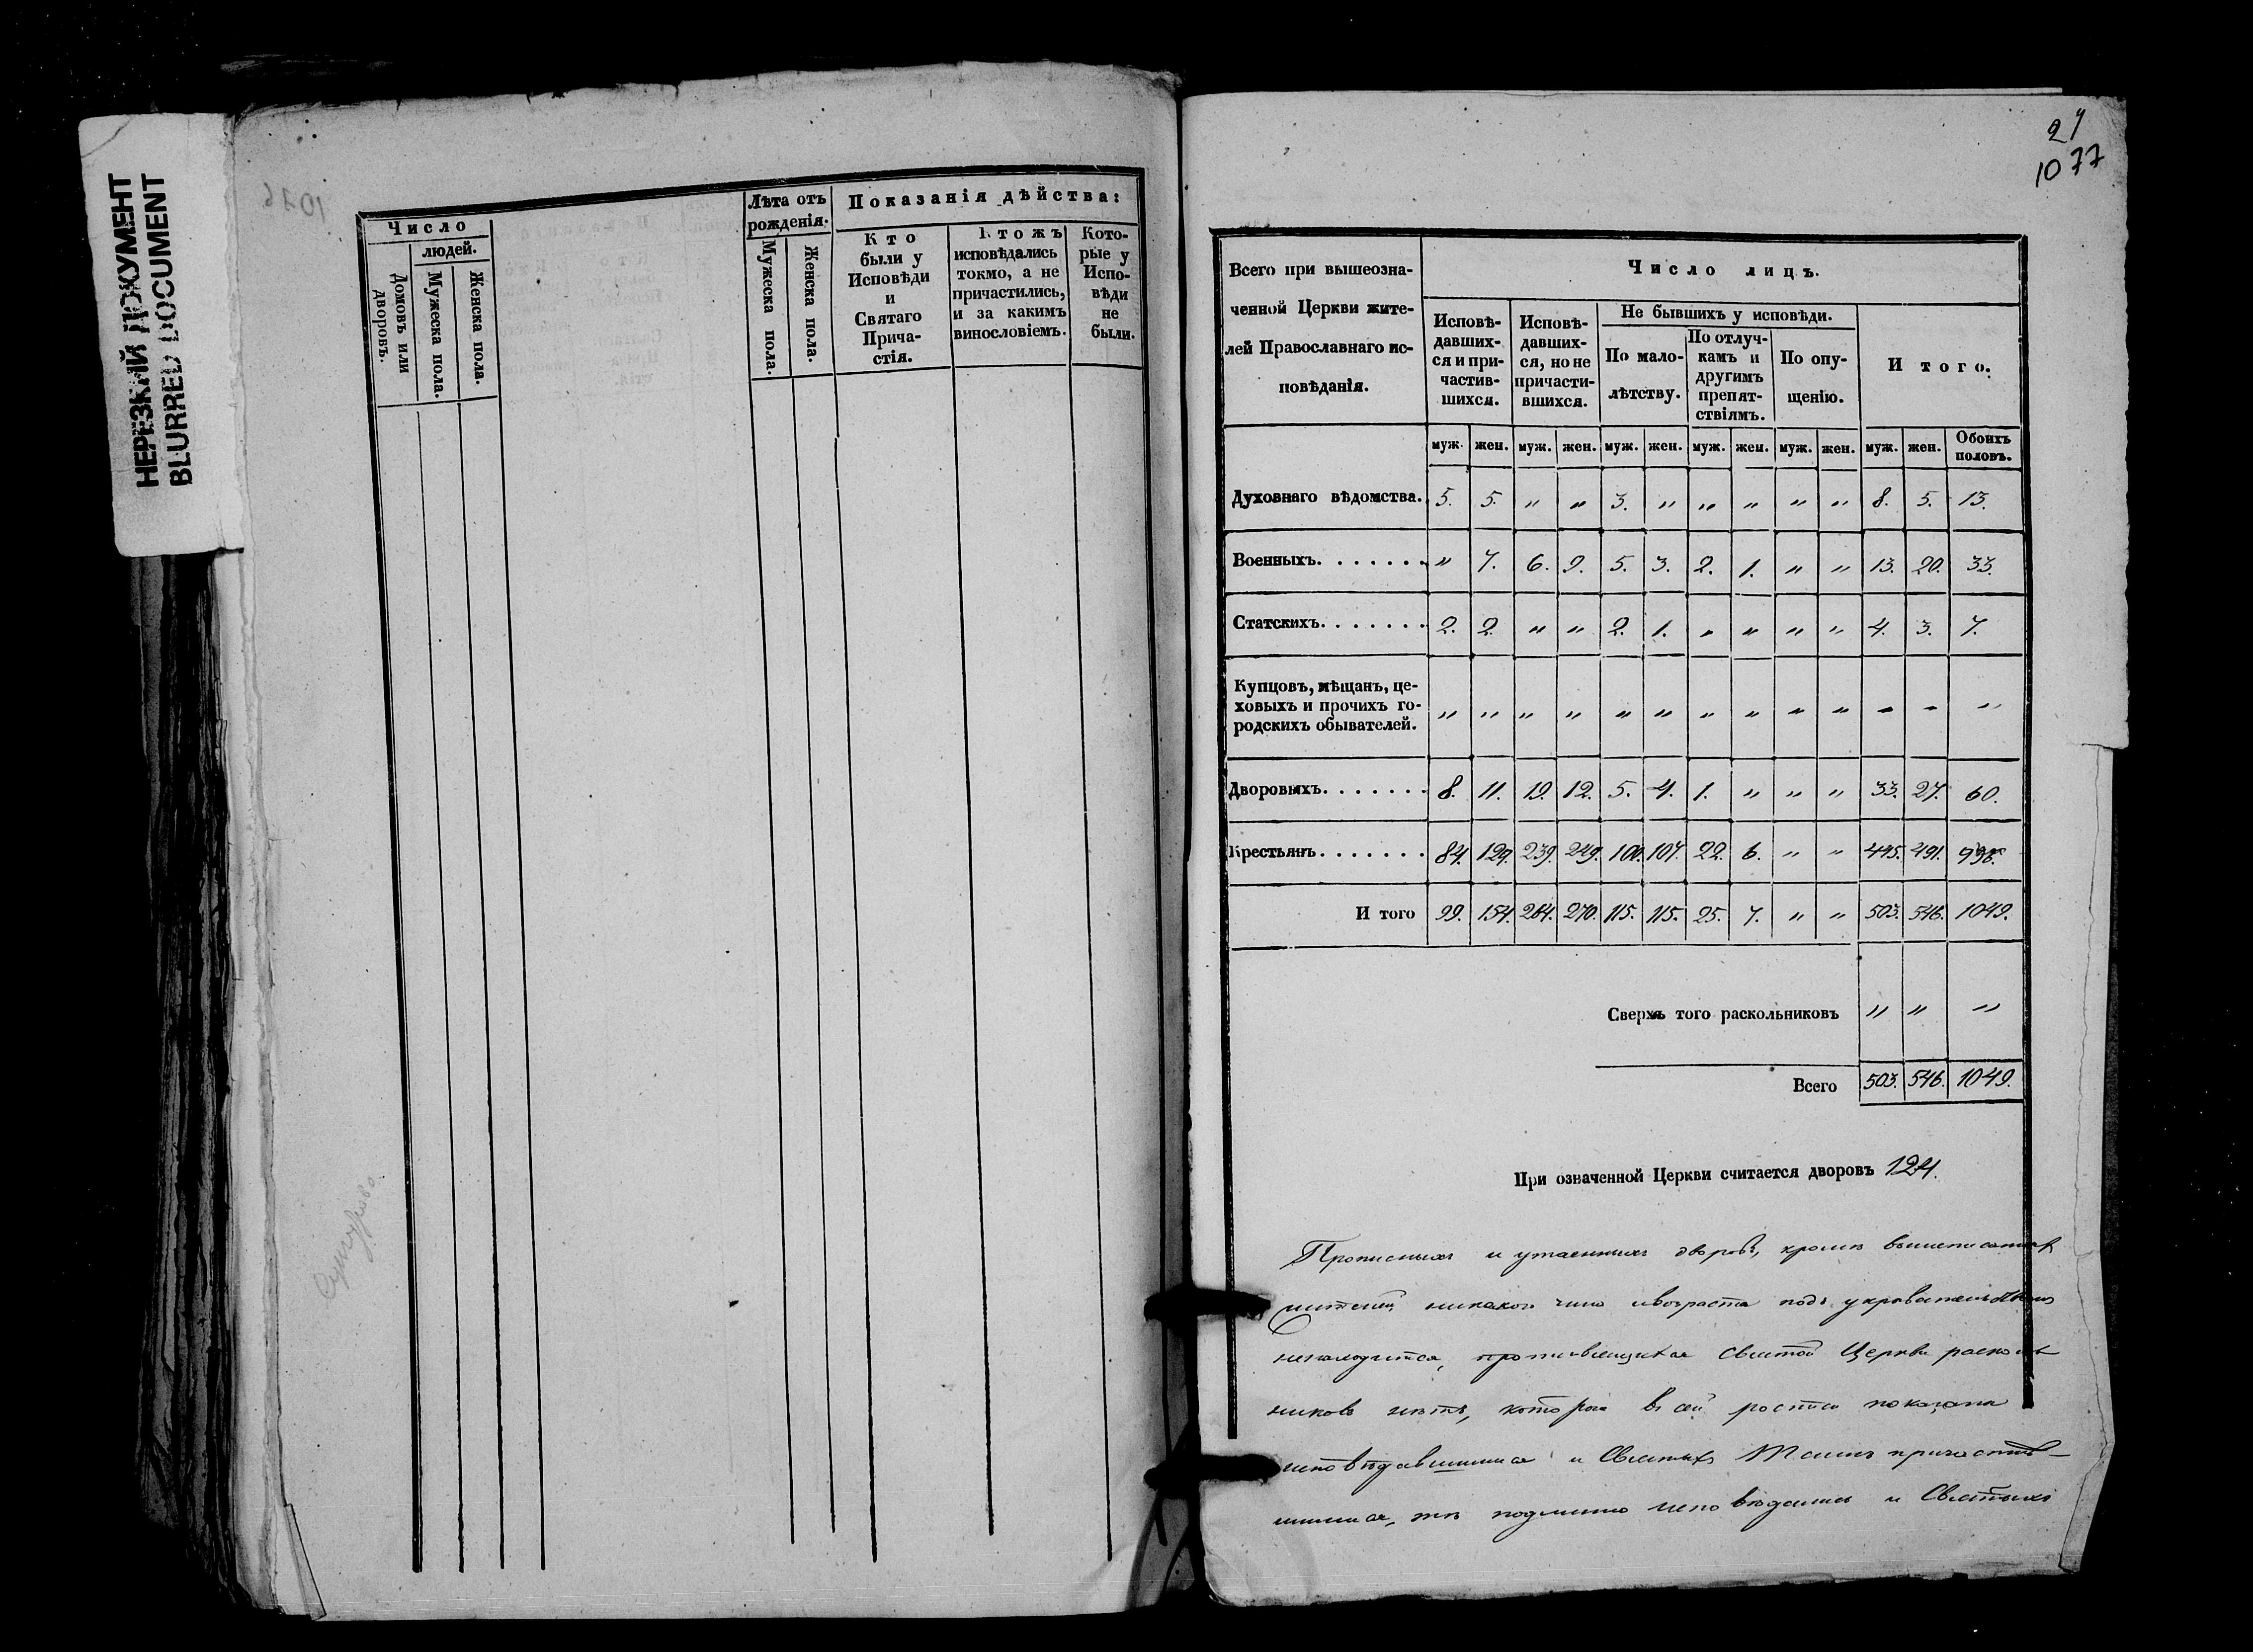 НЕРЕЗКИЙ ДОКУМЕНТ
BLURRED DOCUMENT
1076
Число
людей.
Домовъ или дворовъ.
Мужеска пола.
Женска пола.
Лѣта отъ рожденія.
Мужеска пола.
Женска пола.
Показанія дѣйства:
Кто были у Исповѣди и Святаго Прича-стія.
Ктожъ исповѣдались токмо, а не причастились, и за какимъ винословіемъ.
Кото-рые у Испо-вѣди не были.
1077
Всего при вышеозна-
ченной Церкви жите-
лей Православнаго ис-
повѣданія.
Число лицъ.
Исповѣ-давших-ся и при-частив-шихся.
Исповѣ-давших-ся, но не причасти-вшихся.
Не бывшихъ у исповѣди.
По мало-лѣтству.
По отлуч-камъ и другимъ препят-ствіямъ.
По опу-щенію.
Итого.
муж. жен. муж. жен. муж. жен. муж. жен. муж. жен. муж. жен. Обоихъ половъ.
Духовнаго вѣдомства. 5. 5. " " 3. " " " " " 8. 5. 13.
Военныхъ. . . . . . . " 7. 6. 9. 5. 3. 2. 1. " " 13. 20. 33.
Статскихъ. . . . . . . 2. 2. " " 2. 1. " " " " 4. 3. 7.
Купцовъ, мѣщанъ, це-
ховыхъ и прочихъ го-
родскихъ обывателей. " " " " " " " " " " " " "
Дворовыхъ. . . . . . . 8. 11. 19. 12. 5. 4. 1. " " " 33. 27. 60.
Крестьянъ. . . . . . . 84. 129. 239. 249. 100. 107. 22. 6. " " 445. 491. 936.
И того 99. 154. 264. 270. 115. 115. 25. 7. " " 503. 546. 1049.
Сверхъ того раскольниковъ " " "
Всего 503. 546. 1049.
При означенной Церкви считается дворовъ 124.
Прописныхъ и утаенныхъ дворовъ, кромѣ вышеписанныхъ
жителей никакого чина и возраста подъ укрывательствомъ
ненаходится, противящихся Святой Церкви расколь
никовъ нѣтъ, которыя въ сей росписи показаны
исповѣдавшимися и Святыхъ Таинъ причастив
шимися, тѣ подлинно исповѣдались и Святыхъ